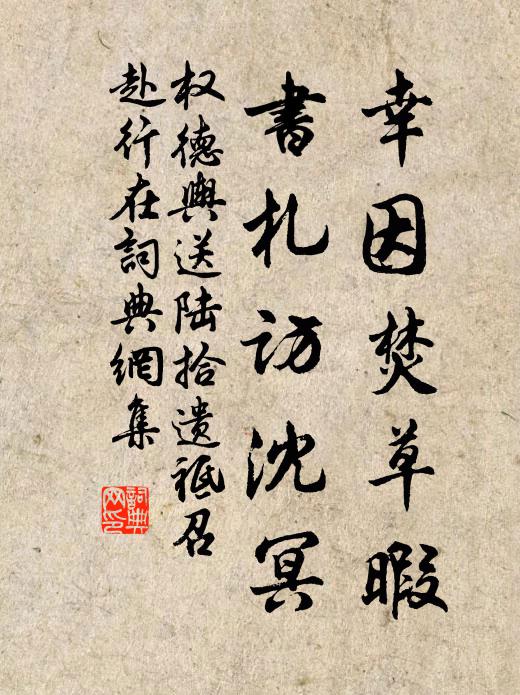 幸因焚草暇
書札访沈冥
权德輿送陆拾遗祗召
赴行在詞典網集
詞典网印